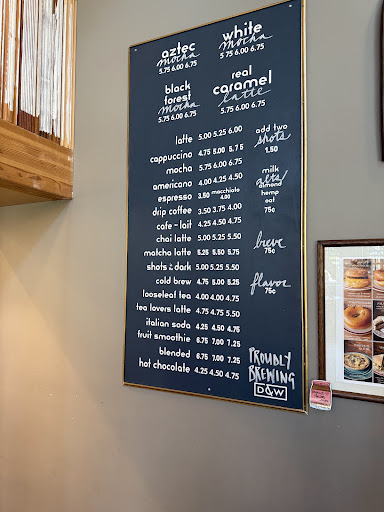 aztec
mocha
5.75 6.00 6.75
white
mocha
5.75 6.00 6.75
black
forest
mocha
5.75 6.00 6.75
real
caramel
latte
5.75 6.00 6.75
latte 5.00 5.25 6.00
cappuccino 4.75 5.00 5.75
mocha 5.75 6.00 6.75
americano 4.00 4.25 4.50
espresso 3.50 macchiato 4.00
drip coffee 3.50 3.75 4.00
cafe-lait 4.25 4.50 4.75
chai latte 5.00 5.25 5.50
matcha latte 5.25 5.50 5.75
shots in the dark 5.00 5.25 5.50
cold brew 4.75 5.00 5.25
looseleaf tea 4.00 4.00 4.75
tea lovers latte 4.75 4.75 5.50
italian soda 4.25 4.50 4.75
fruit smoothie 6.75 7.00 7.25
blended 6.75 7.00 7.25
hot chocolate 4.25 4.50 4.75
add two
shots
1.50
milk
alts/
almond
hemp
oat
75¢
breve
75¢
flavor
75¢
PROUDLY
BREWING
D&W